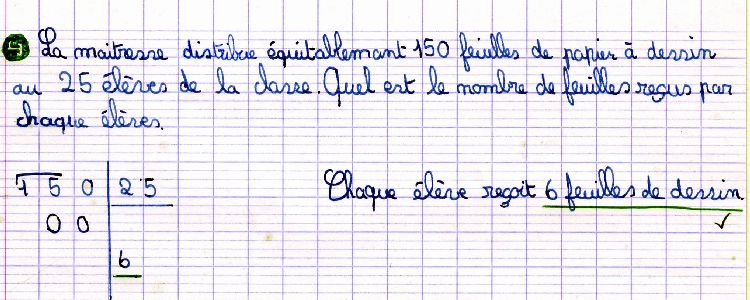 5 La maitresse distribue équitablemant 150 feiulles de papier à dessin
au 25 élèves de la classe. Quel est le nombre de feuilles reçus par
chaque élèves.
150 25 Chaque élève reçoit 6 feuilles de dessin.
00
6